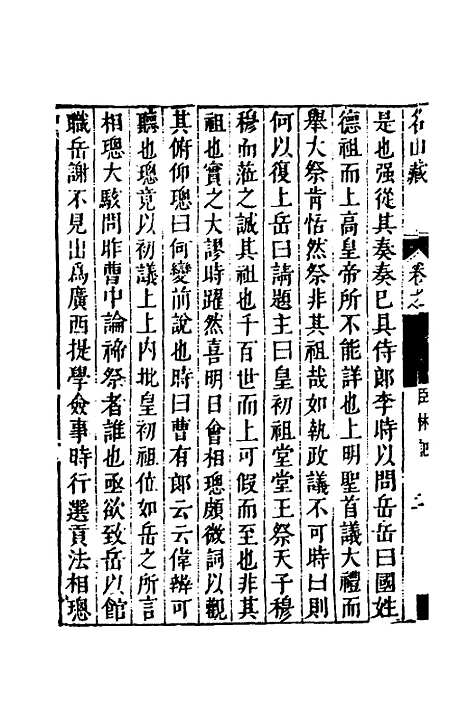 名山藏 卷之 臣林記 二
是也强從其奏奏已具侍郎李時以問岳岳曰國姓
德祖而上高皇帝所不能詳也上明聖首議大禮而
舉大祭肯恬然祭非其祖哉如執政議不可時曰則
何以復上岳曰請題主曰皇初祖堂堂王祭天子穆
穆而蒞之誠其祖也千百世而上可假而至也非其
祖也實之大謬時躍然喜明日會相璁頗微詞以觀
其俯仰璁曰何變前說也時曰曹有郎云云偉辨可
聽也璁竟以初議上上內批皇初祖位如岳之所言
相璁大駭問昨曹中論禘祭者誰也亟欲致岳以館
職岳謝不見出爲廣西提學僉事時行選貢法相璁